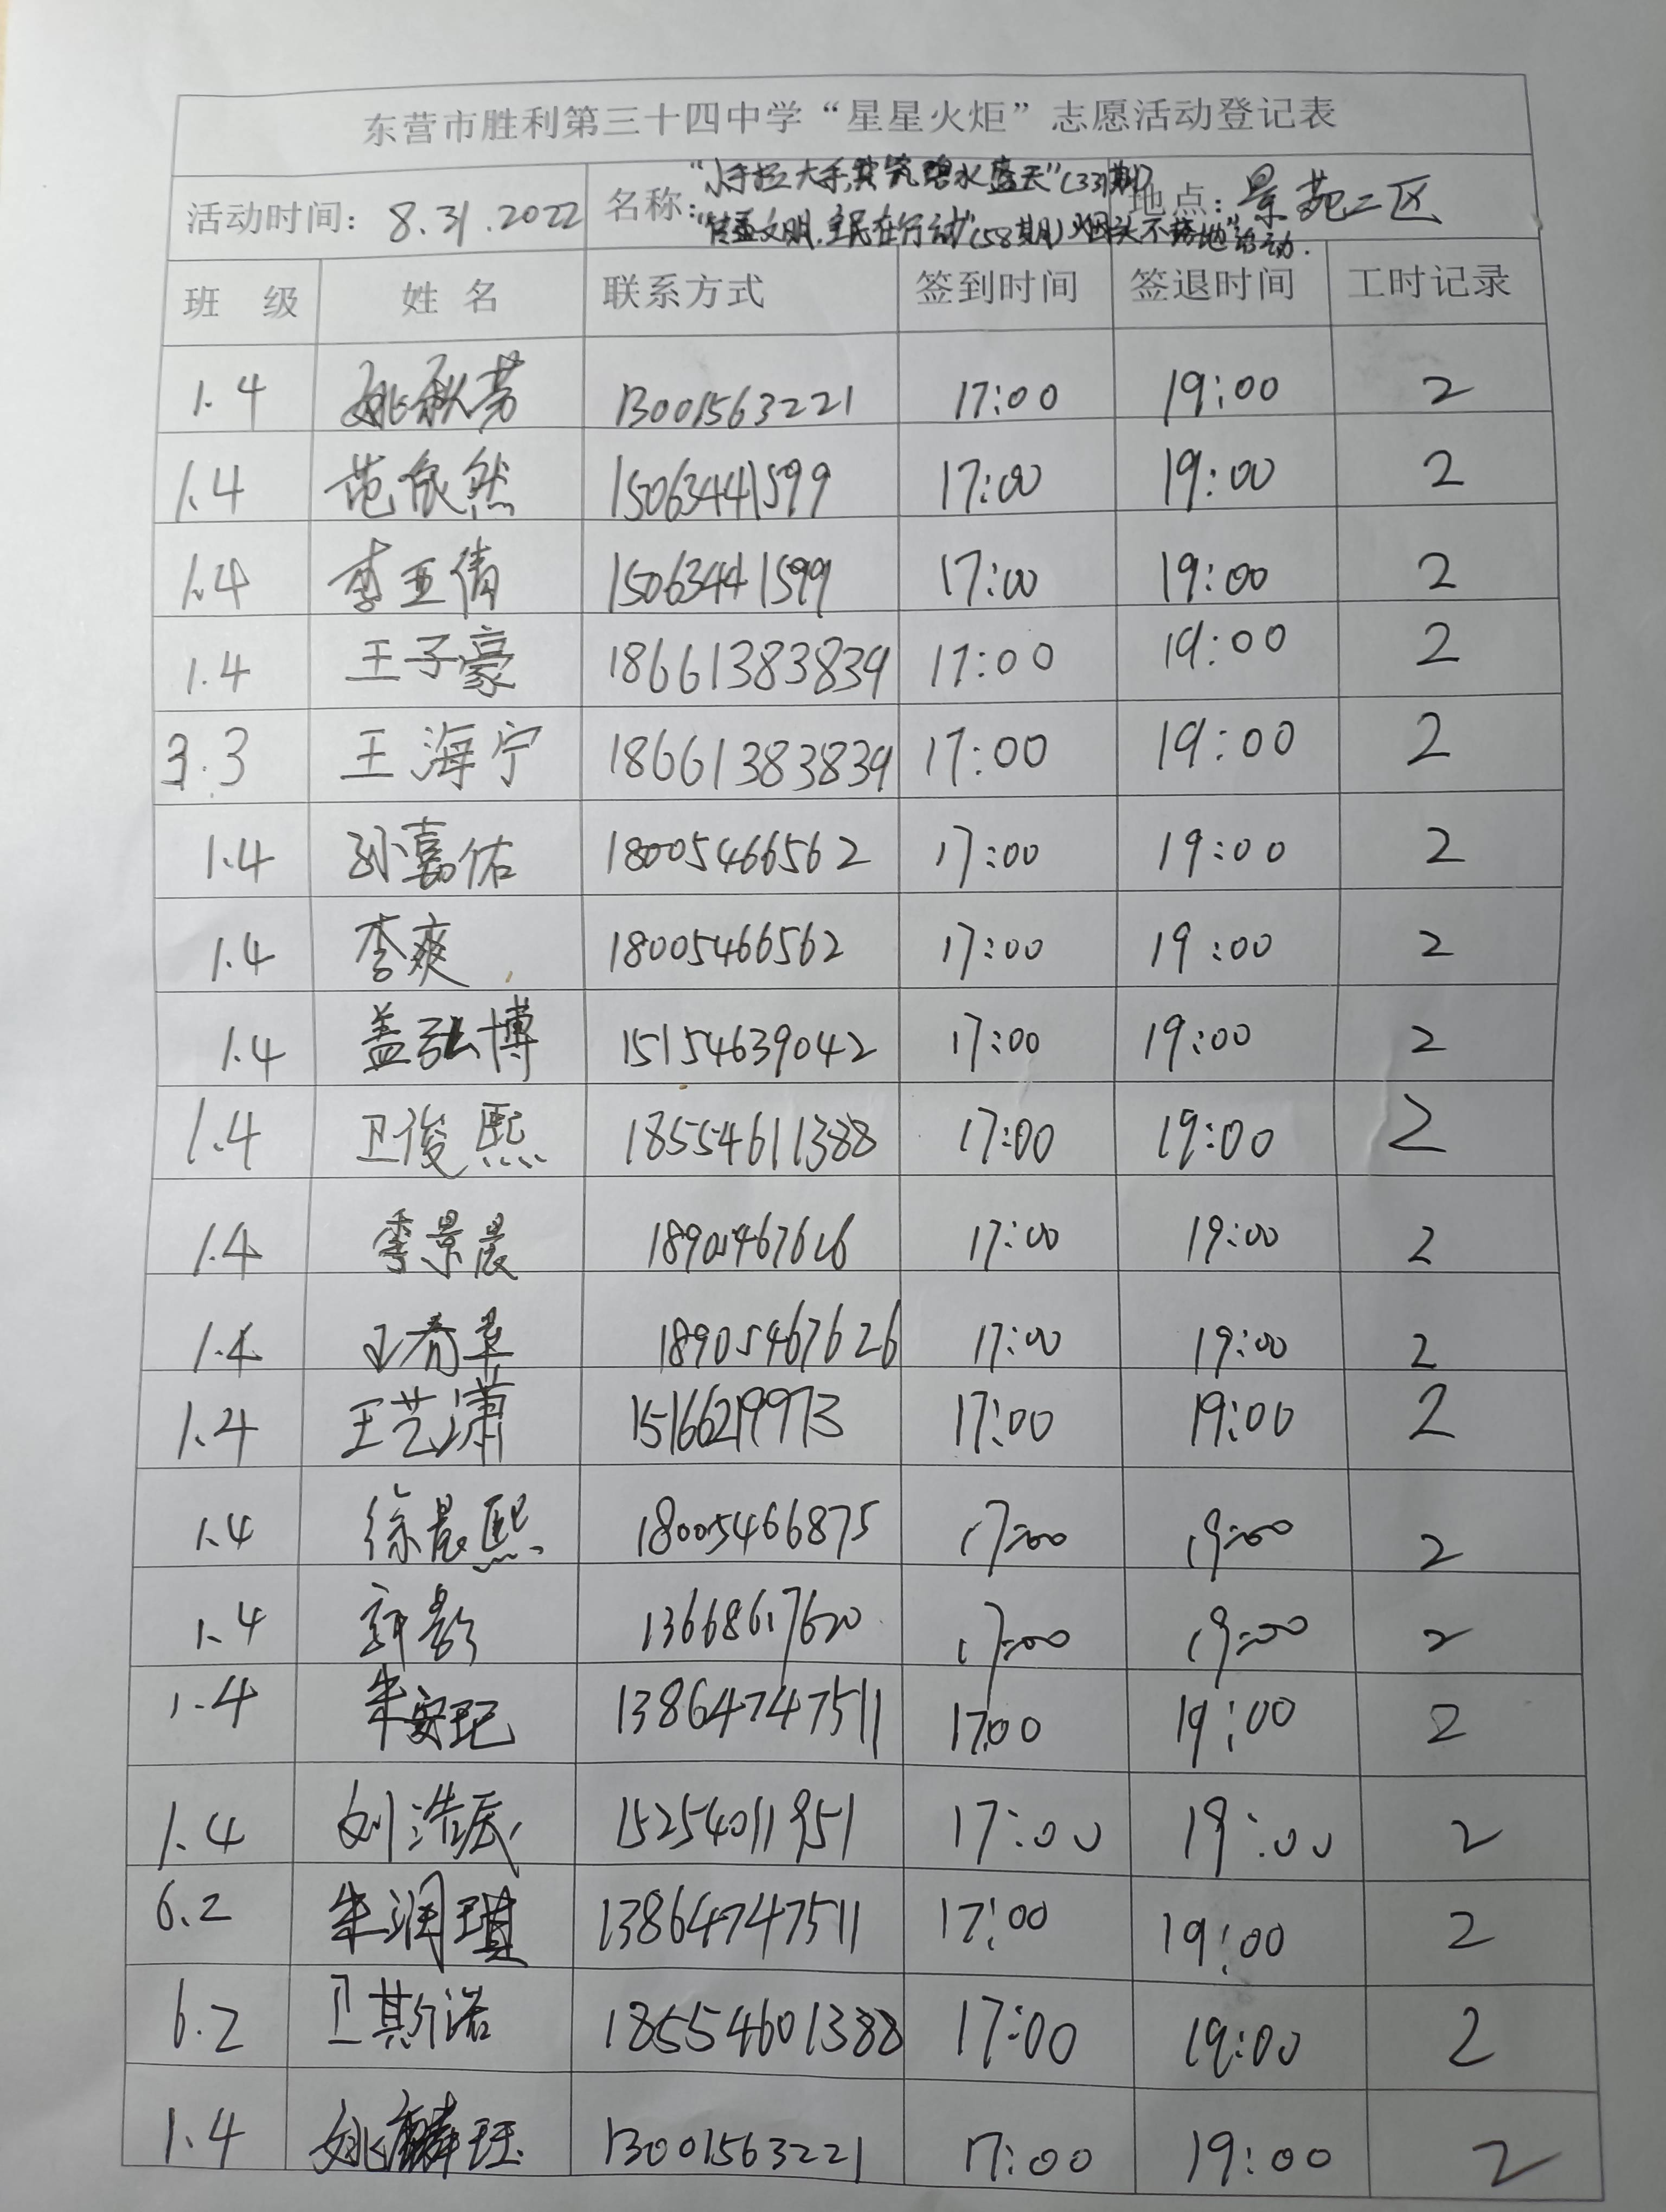 东营市胜利第三十四中学“星星火炬”志愿活动登记表
活动时间: 8.31.2022 名称: “小手拉大手,共筑碧水蓝天”(33期) 地点: 景苑二区
文明, 在行动”(58期)“烟头不落地”活动.
班 级 姓 名 联系方式 签到时间 签退时间 工时记录
1.4 姚秋芳 13001563221 17:00 19:00 2
1.4 范依然 15063441599 17:00 19:00 2
1.4 李亚倩 15063441599 17:00 19:00 2
1.4 王子豪 18661383839 17:00 19:00 2
3.3 王海宁 18661383839 17:00 19:00 2
1.4 孙嘉佑 18005466562 17:00 19:00 2
1.4 李爽 18005466562 17:00 19:00 2
1.4 盖弘博 15154639042 17:00 19:00 2
1.4 卫俊熙 18554611388 17:00 19:00 2
1.4 李景晨 17:00 19:00 2
1.4 18905467626 17:00 19:00 2
1.4 王艺潇 15166219973 17:00 19:00 2
1.4 徐晨熙 18005466875 17:00 19:00 2
1.4 13668617620 17:00 19:00 2
1.4 朱安玘 13864747511 17:00 19:00 2
1.4 刘浩辰 15254011951 17:00 19:00 2
6.2 朱润琪 13864747511 17:00 19:00 2
6.2 卫斯诺 18554601388 17:00 19:00 2
1.4 姚麟珏 13001563221 17:00 19:00 2